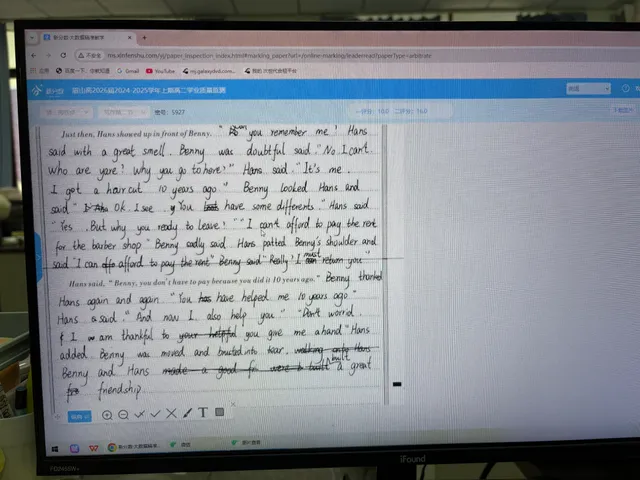 ms.xinfenshu.com/yj/paper_inspection_index.html#marking_paper
百度一下，你就知道 Gmail YouTube
2024-2025学年上期高二学业质量监测
5927
一评分：10.0 二评分：16.0
Just then, Hans showed up in front of Benny. " you remember me ? Hans
said with a great smell . Benny was doubtful said . "No , I can't
who are yare ? Why you go to here ?" Hans said . "It's me ,
I got a haircut 10 years ago " Benny looked Hans and
said " Ok . I see . You have some differents . " Hans said
"Yes . But why you ready to leave ? " " I can't afford to pay the rent
for the barber shop " Benny sadly said . Hans patted Benny's shoulder and
said "I can afford to pay the rent" Benny said "Really ? I must return you "
Hans said, " Benny, you don't have to pay because you did it 10 years ago." Benny thanked
Hans again and again "You have helped me 10 years ago "
Hans said . "And now I also help you " "Don't worrid
I am thankful to you give me a hand " Hans
added . Benny was moved and bruted into tear .
Benny and Hans built a great
friendship .
T
iFound